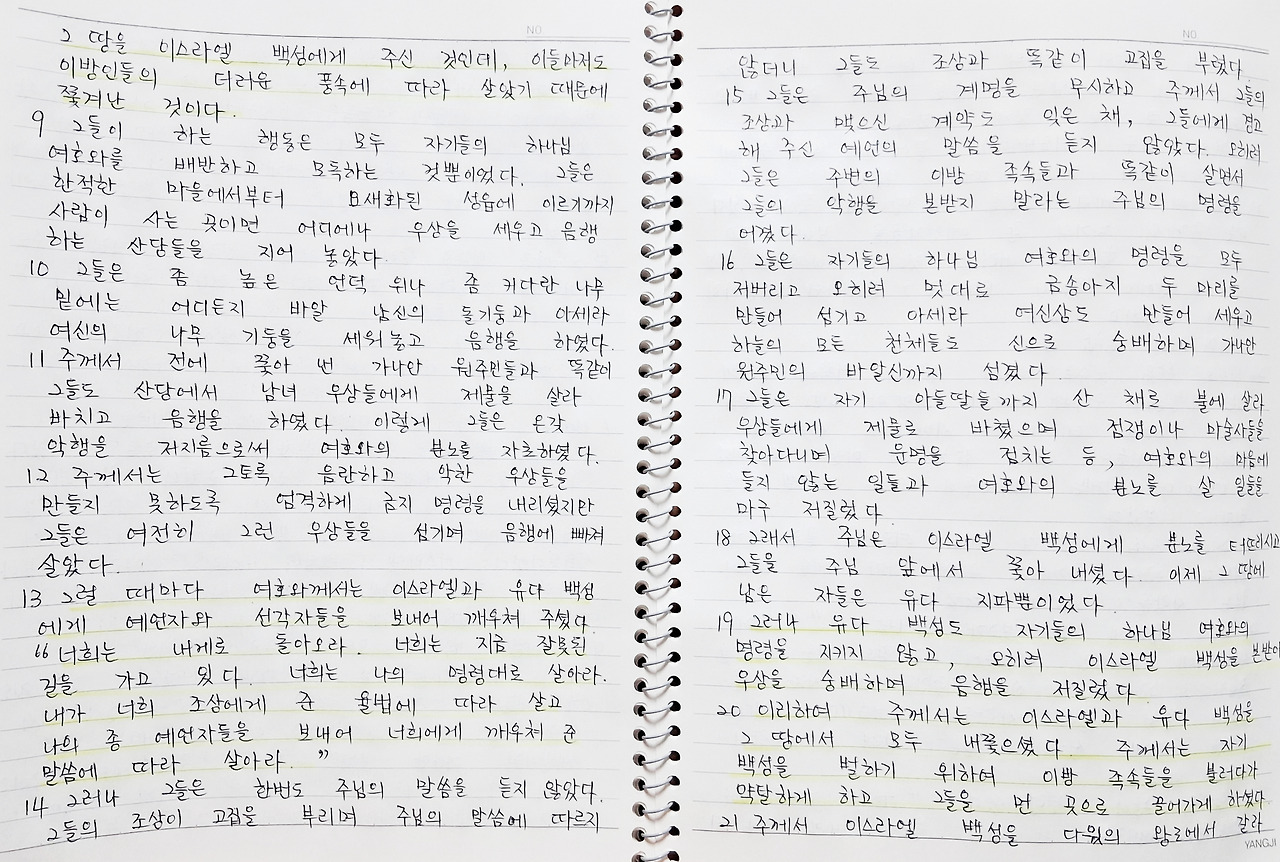 NO
그 땅을 이스라엘 백성에게 주신 것인데, 이들마저도
이방인들의 더러운 풍속에 따라 살았기 때문에
쫓겨난 것이다.
9 그들이 하는 행동은 모두 자기들의 하나님
여호와를 배반하고 모독하는 것뿐이었다. 그들은
한적한 마을에서부터 요새화된 성읍에 이르기까지
사람이 사는 곳이면 어디에나 우상을 세우고 음행
하는 산당들을 지어 놓았다.
10 그들은 좀 높은 언덕 위나 좀 커다란 나무
밑에는 어디든지 바알 남신의 돌기둥과 아세라
여신의 나무 기둥을 세워놓고 음행을 하였다.
11 주께서 전에 쫓아 낸 가나안 원주민들과 똑같이
그들도 산당에서 남녀 우상들에게 제물을 살라
바치고 음행을 하였다. 이렇게 그들은 온갖
악행을 저지름으로써 여호와의 분노를 자초하였다.
12 주께서는 그토록 음란하고 악한 우상들을
만들지 못하도록 엄격하게 금지 명령을 내리셨지만
그들은 여전히 그런 우상들을 섬기며 음행에 빠져
살았다.
13 그럴 때마다 여호와께서는 이스라엘과 유다 백성
에게 예언자와 선각자들을 보내어 깨우쳐 주셨다.
“너희는 내게로 돌아오라. 너희는 지금 잘못된
길을 가고 있다. 너희는 나의 명령대로 살아라.
내가 너희 조상에게 준 율법에 따라 살고
나의 종 예언자들을 보내어 너희에게 깨우쳐 준
말씀에 따라 살아라.”
14 그러나 그들은 한번도 주님의 말씀을 듣지 않았다.
그들의 조상이 고집을 부리며 주님의 말씀에 따르지
NO
않더니 그들도 조상과 똑같이 고집을 부렸다.
15 그들은 주님의 계명을 무시하고 주께서 그들의
조상과 맺으신 계약도 잊은 채, 그들에게 경고
해 주신 예언의 말씀을 듣지 않았다. 오히려
그들은 주변의 이방 족속들과 똑같이 살면서
그들의 악행을 본받지 말라는 주님의 명령을
어겼다.
16 그들은 자기들의 하나님 여호와의 명령을 모두
저버리고 오히려 멋대로 금송아지 두 마리를
만들어 섬기고 아세라 여신상도 만들어 세우고
하늘의 모든 천체들도 신으로 숭배하며 가나안
원주민의 바알신까지 섬겼다.
17 그들은 자기 아들딸들까지 산 채로 불에 살라
우상들에게 제물로 바쳤으며 점쟁이나 마술사들을
찾아다니며 운명을 점치는 등, 여호와의 마음에
들지 않는 일들과 여호와의 분노를 살 일들을
마구 저질렀다.
18 그래서 주님은 이스라엘 백성에게 분노를 터뜨리시고
그들을 주님 앞에서 쫓아 내셨다. 이제 그 땅에
남은 자들은 유다 지파뿐이었다.
19 그러나 유다 백성도 자기들의 하나님 여호와의
명령을 지키지 않고, 오히려 이스라엘 백성을 본받아
우상을 숭배하며 음행을 저질렀다
20 이리하여 주께서는 이스라엘과 유다 백성을
그 땅에서 모두 내쫓으셨다. 주께서는 자기
백성을 벌하기 위하여 이방 족속들을 불러다가
약탈하게 하고 그들을 먼 곳으로 끌어가게 하셨다
21 주께서 이스라엘 백성을 다윗의 왕조에서 갈라
YANGJI